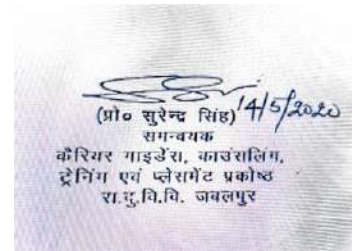 (प्रो० सुरेन्द्र सिंह) 14/5/2020
समन्वयक
कैरियर गाइडेंस, काउंसलिंग,
ट्रेनिंग एवं प्लेसमेंट प्रकोष्ठ
रा.दु.वि.वि. जबलपुर